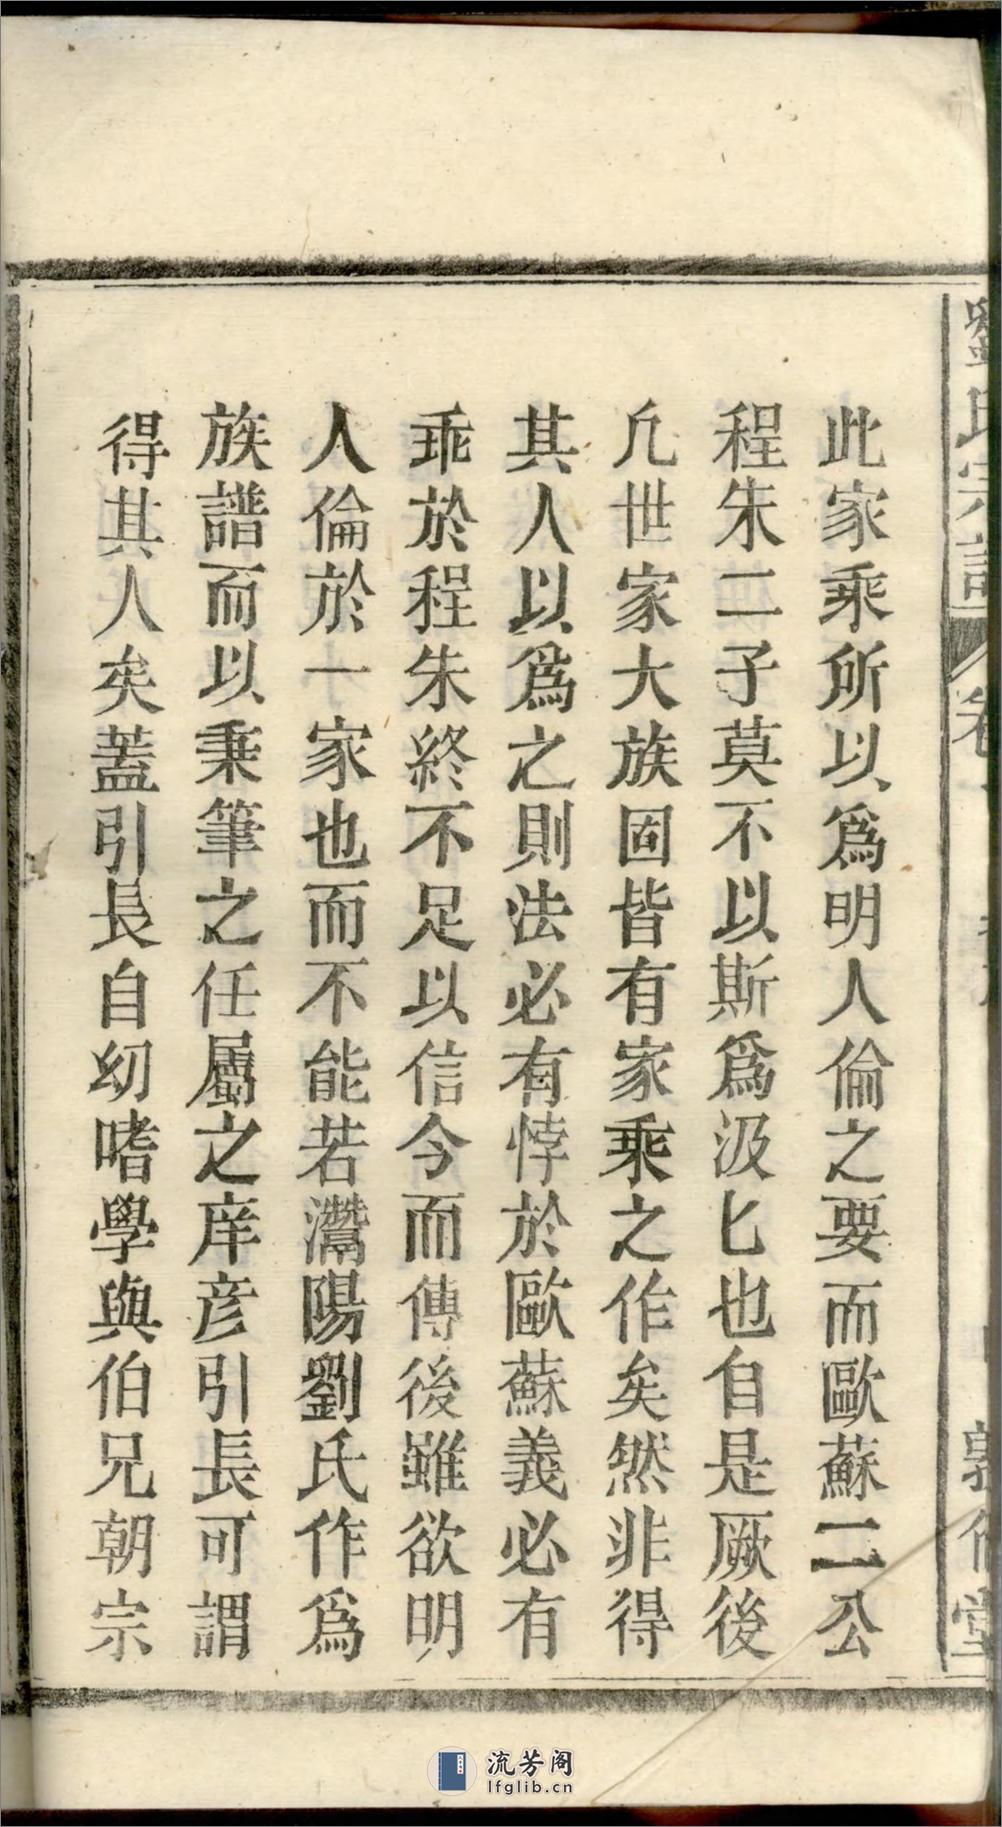 此家乘所以為明人倫之要而歐蘇二公
程朱二子莫不以斯為汲匕也自是厥後
凢世家大族固皆有家乘之作矣然非得
其人以為之則法必有悖於歐蘇義必有
乖於程朱終不足以信今而傳後雖欲明
人倫於一家也而不能若灊陽劉氏作為
族譜而以秉筆之任屬之庠彥引長可謂
得其人矣蓋引長自幼嗜學與伯兄朝宗
流芳阁
lfglib.cn